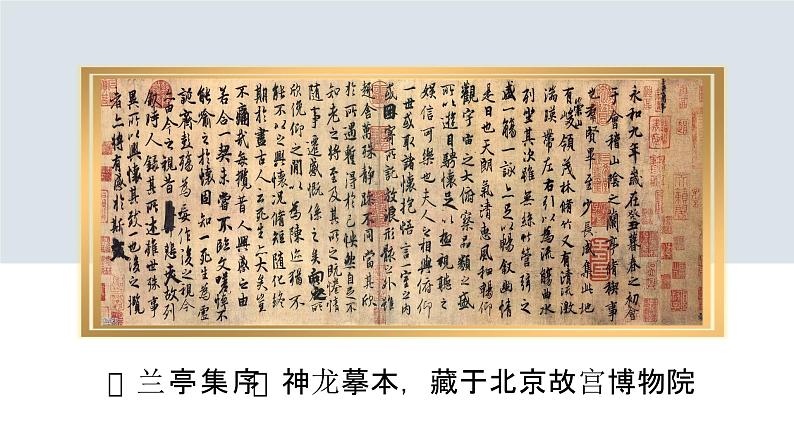 永和九年歲在癸丑暮春之初會
于會稽山陰之蘭亭脩禊事
也羣賢畢至少長咸集此地
有崇山峻領茂林脩竹又有清流激
湍暎帶左右引以為流觴曲水
列坐其次雖無絲竹管弦之
盛一觴一詠亦足以暢敘幽情
是日也天朗氣清惠風和暢仰
觀宇宙之大俯察品類之盛
所以遊目騁懷足以極視聽之
娛信可樂也夫人之相與俯仰
一世或取諸懷抱悟言一室之內
或因寄所託放浪形骸之外雖
趣舍萬殊靜躁不同當其欣
於所遇蹔得於己快然自足不
知老之將至及其所之既惓情
隨事遷感慨係之矣向之所
欣俛仰之間以為陳迹猶不
能不以之興懷況脩短隨化終
期於盡古人云死生亦大矣豈
不痛哉每攬昔人興感之由
若合一契未嘗不臨文嗟悼不
能喻之於懷固知一死生為虛
誕齊彭殤為妄作後之視今
亦由今之視昔悲夫故列
敘時人錄其所述雖世殊事
異所以興懷其致一也後之攬
者亦將有感於斯文
兰亭集序 神龙摹本，藏于北京故宫博物院